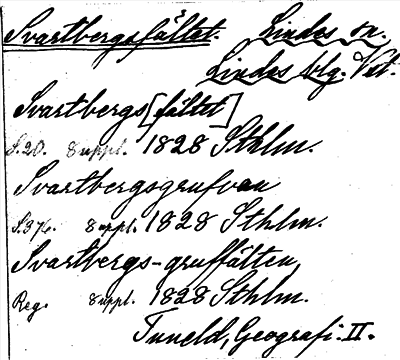 Svartbergsfältet. Lindes sn.
Lindes blg. Vst.
Svartbergs[fältet]
S.20. Suppl. 1828 Sthlm.
Svartbergsgrufvan
S.376. Suppl. 1828 Sthlm.
Svartbergs-gruffälten
Reg. Suppl. 1828 Sthlm.
Tuneld, Geografi. II.